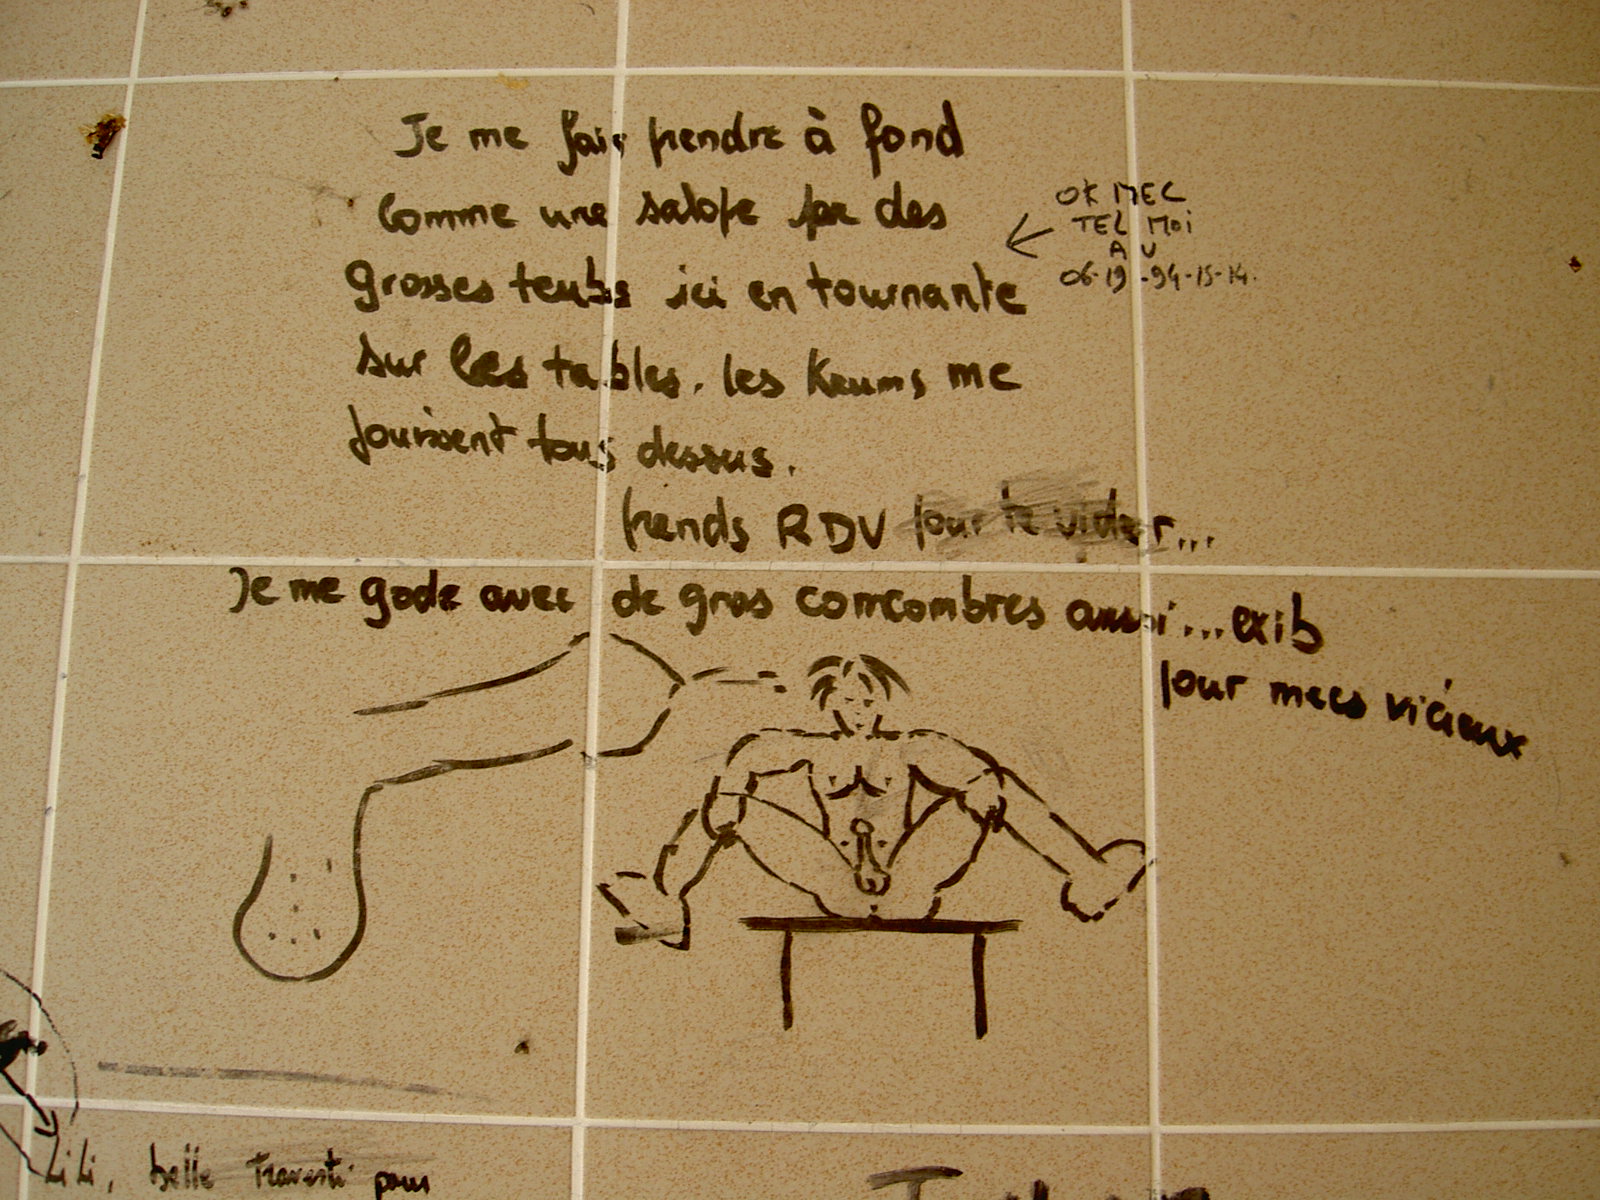 Je me fais prendre à fond
comme une salope par des
grosses teubs ici en tournante
sur les tables. les Keums me
jouissent tous dessus.
OK MEC
TEL MOI
AU
06-19-94-15-14.
prends RDV pour te vider...
Je me gode avec de gros comcombres aussi... exib
pour mecs viçieux
LiLi, belle Travesti pour